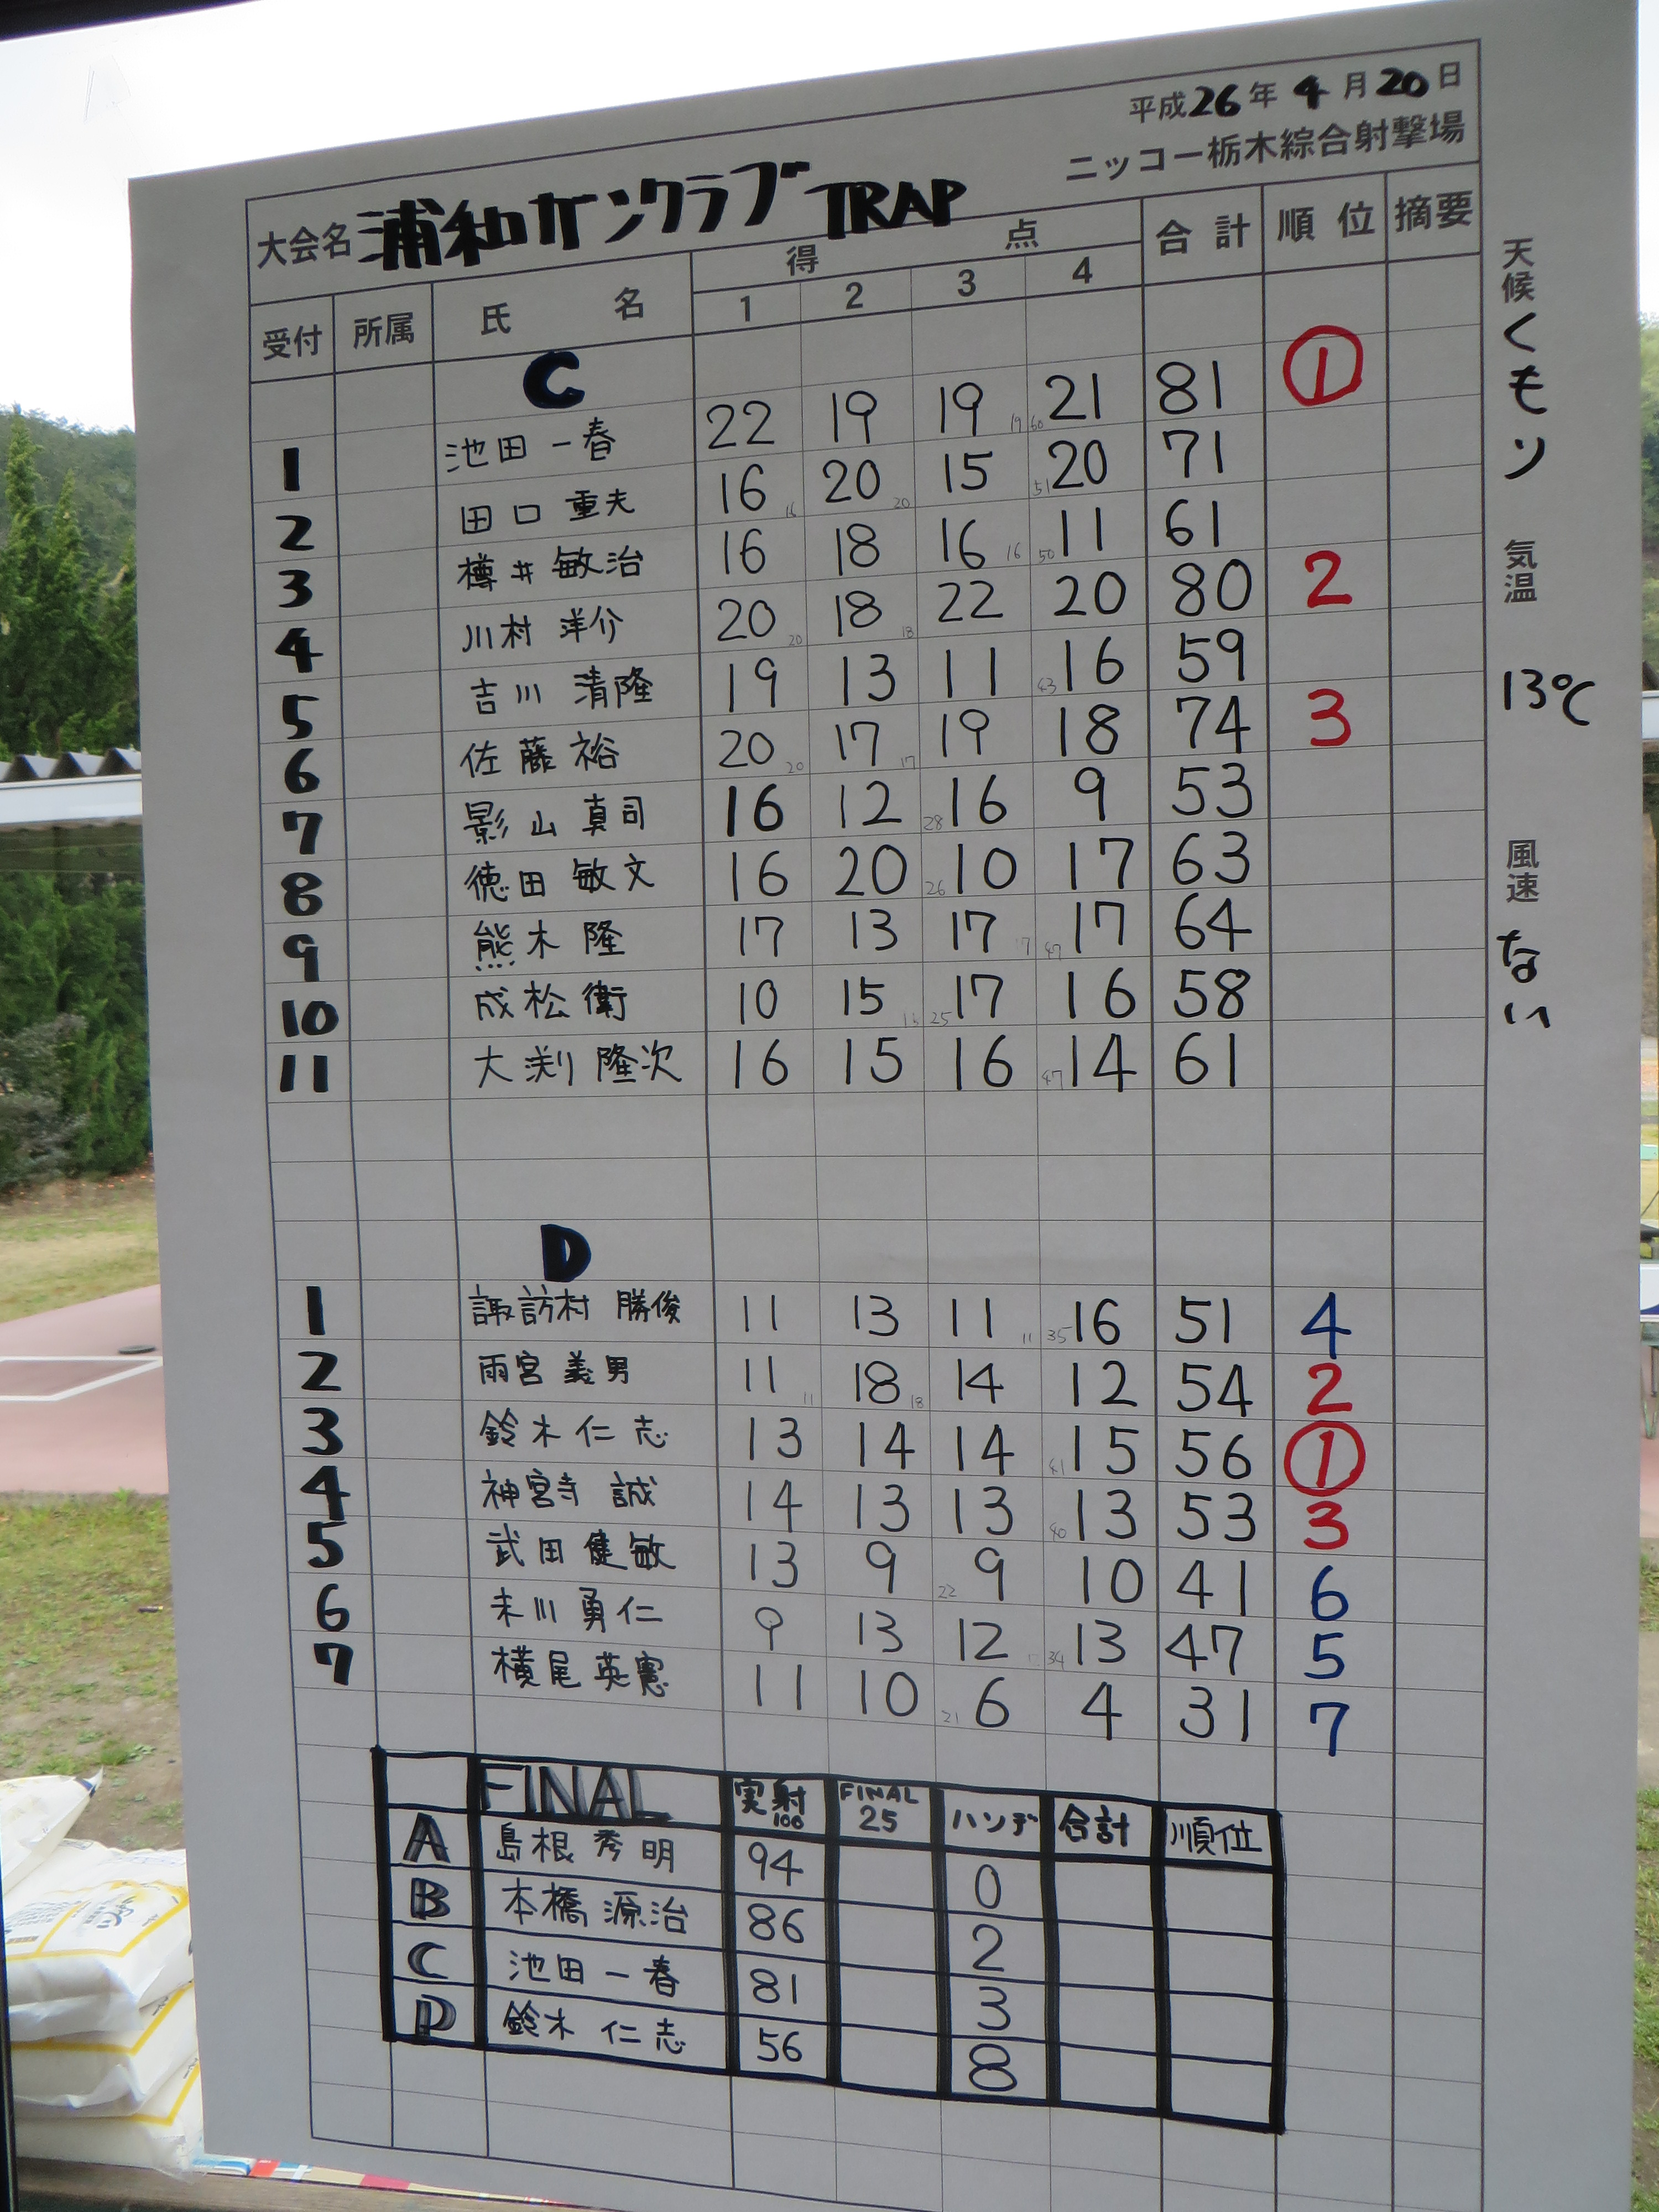 平成26年 4月20日
ニッコー栃木綜合射撃場
大会名 浦和ガンクラブ TRAP
受付 所属 氏名 得点 合計 順位 摘要
1 2 3 4
C
1 池田 一春 22 19 19 19 60 21 81 ①
2 田口 重夫 16 16 20 20 15 51 20 71
3 樽井 敏治 16 18 16 16 50 11 61
4 川村 洋介 20 20 18 18 22 20 80 2
5 吉川 清隆 19 13 11 43 16 59
6 佐藤 裕 20 20 17 17 19 18 74 3
7 影山 真司 16 12 28 16 9 53
8 徳田 敏文 16 20 26 10 17 63
9 熊木 隆 17 13 17 17 47 17 64
10 成松 衛 10 15 25 17 16 58
11 大渕 隆次 16 15 16 47 14 61
D
1 諏訪村 勝俊 11 13 11 11 35 16 51 4
2 雨宮 義男 11 11 18 18 14 12 54 2
3 鈴木 仁志 13 14 14 41 15 56 ①
4 神宮寺 誠 14 13 13 40 13 53 3
5 武田 健敏 13 9 22 9 10 41 6
6 末川 勇仁 9 13 12 34 13 47 5
7 横尾 英憲 11 10 21 6 4 31 7
FINAL 実射100 FINAL 25 ハンデ 合計 順位
A 島根 秀明 94 0
B 本橋 源治 86 2
C 池田 一春 81 3
D 鈴木 仁志 56 8
天候 くもり
気温 13℃
風速 ない